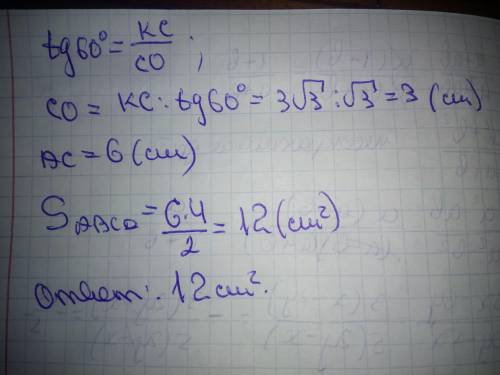 tg60° = KC/CO ;
CO = KC : tg60° = 3√3 : √3 = 3 (см)
AC = 6 (см)
S ABCD = 6·4/2 = 12 (см²)
Ответ: 12 см².